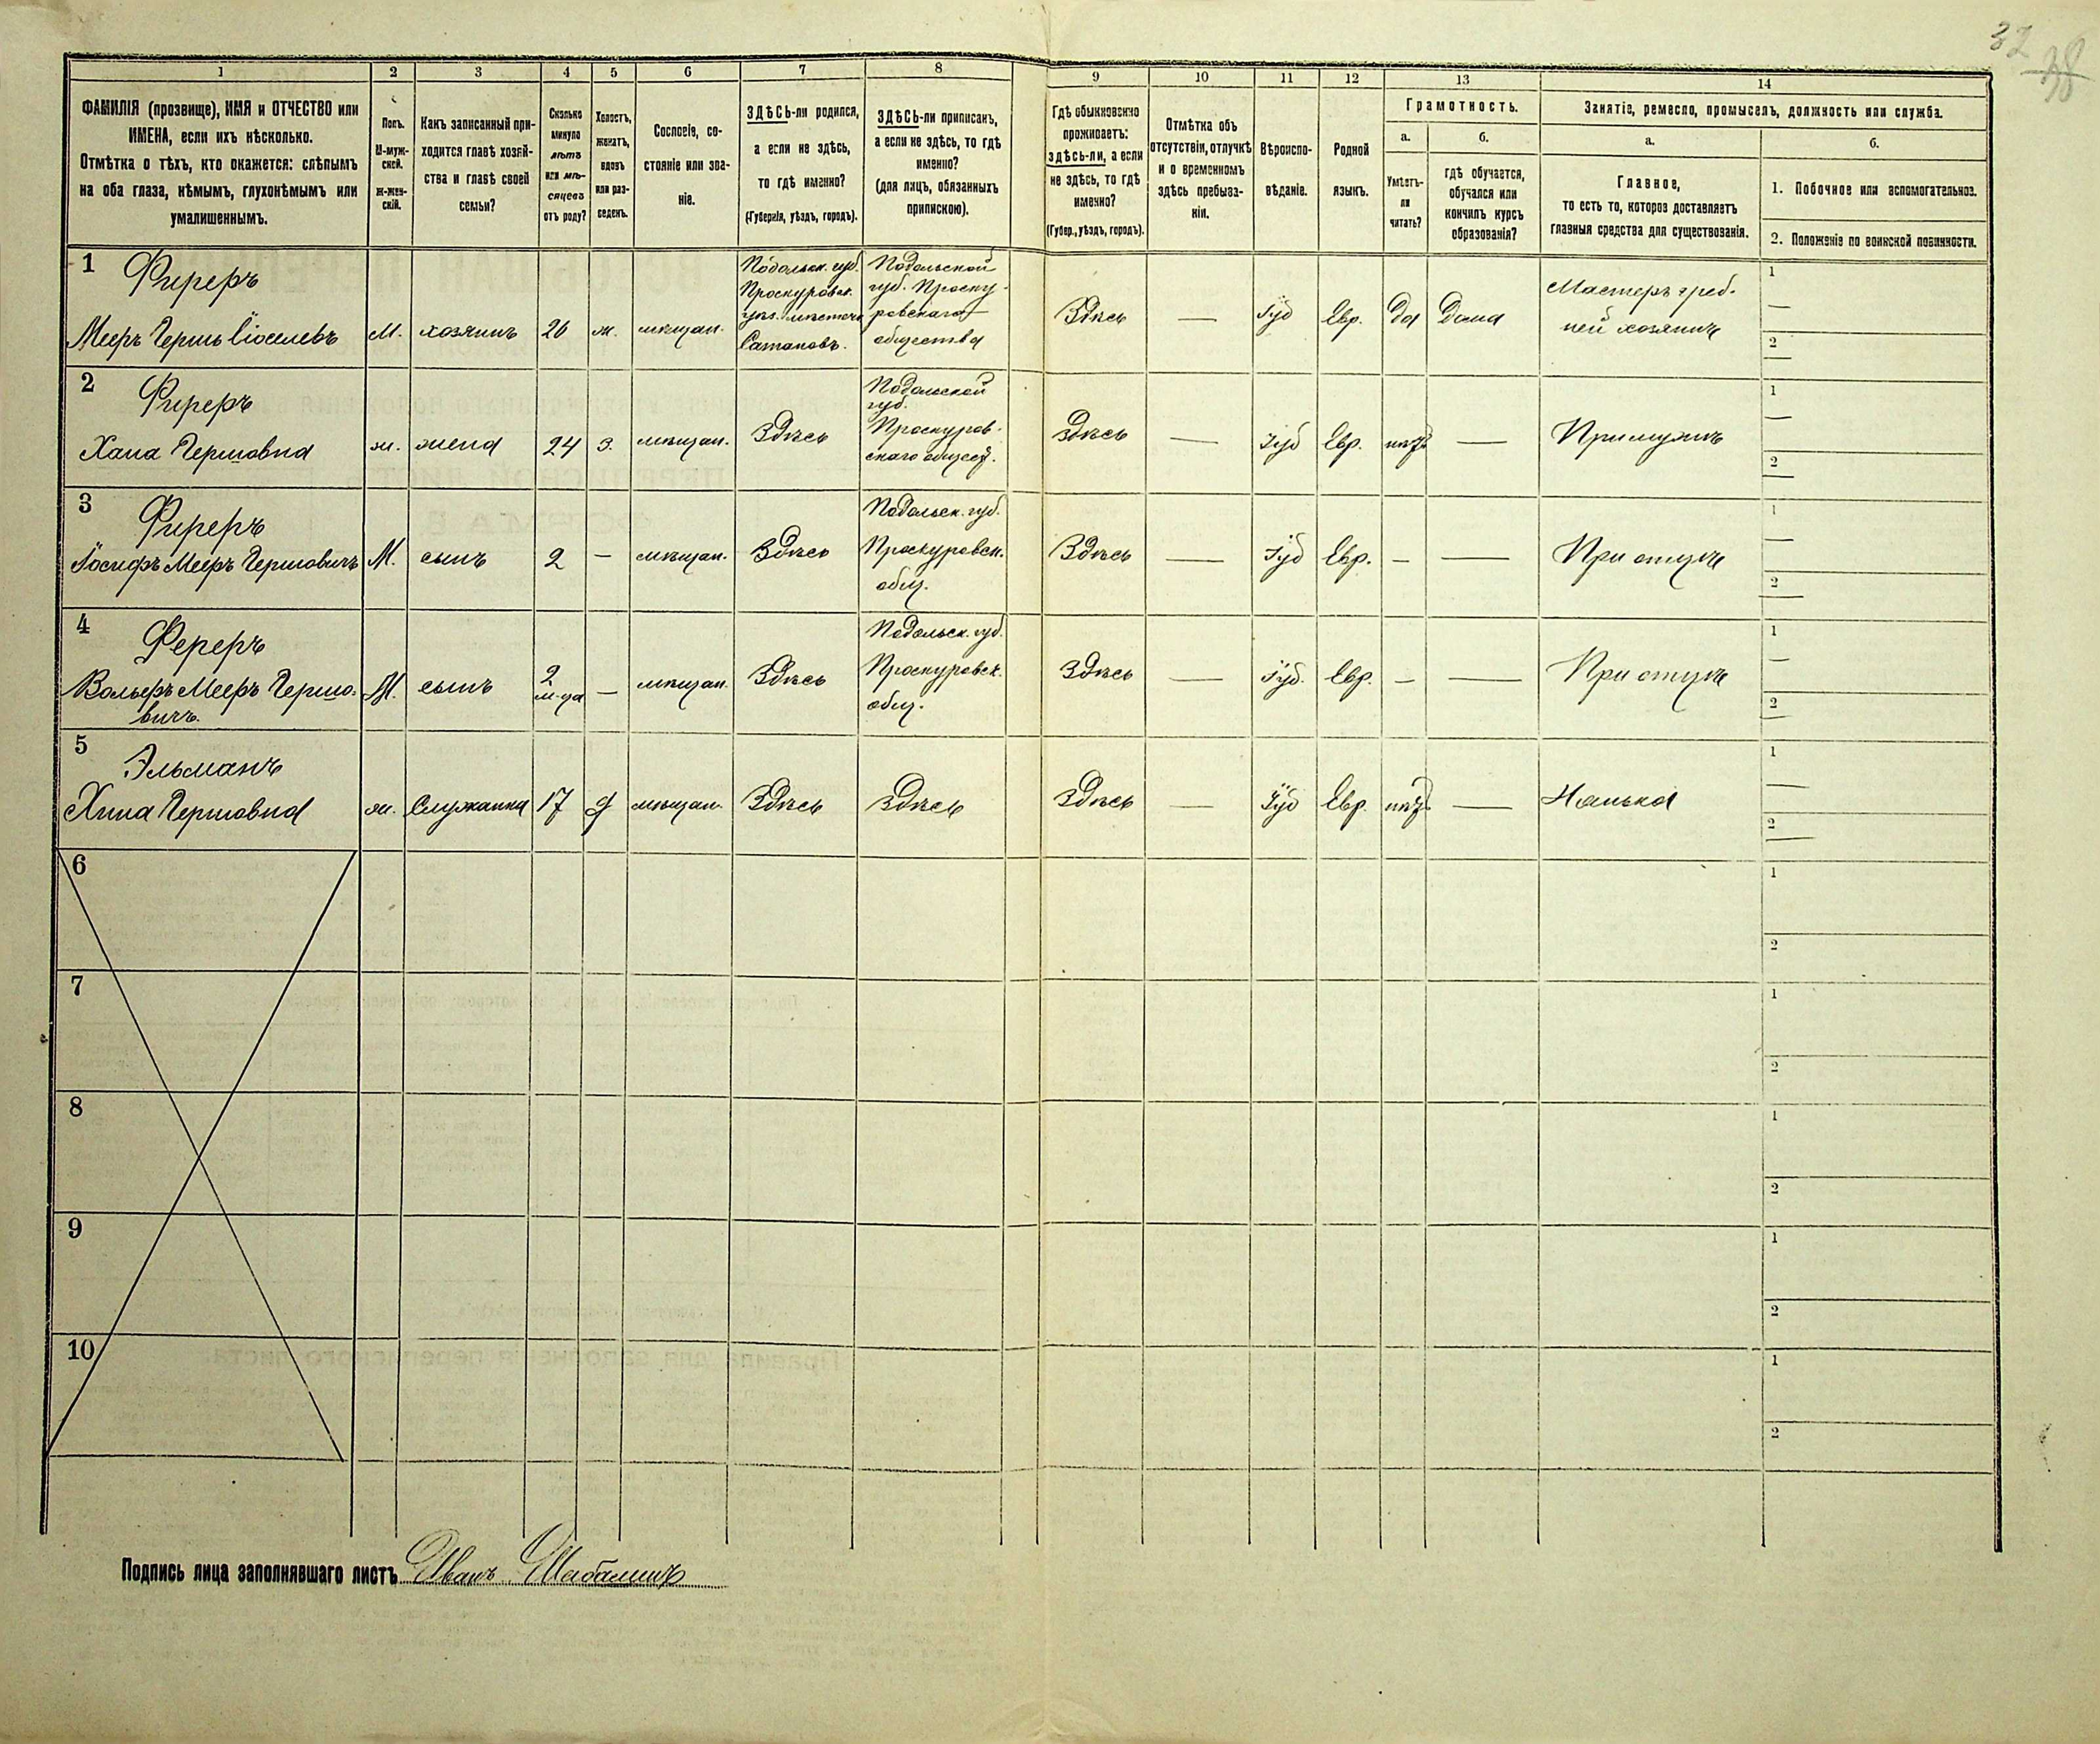 32
38
1 2 3 4 5 6 7 8 9 10 11 12 13 14
ФАМИЛІЯ (прозвище), ИМЯ и ОТЧЕСТВО или
ИМЕНА, если ихъ нѣсколько.
Отмѣтка о тѣхъ, кто окажется: слѣпымъ
на оба глаза, нѣмымъ, глухонѣмымъ или
умалишеннымъ.
Полъ.
М-муж-
ской.
Ж-жен-
скій.
Какъ записанный при-
ходится главѣ хозяй-
ства и главѣ своей
семьи?
Сколько
минуло
лѣтъ
или мѣ-
сяцевъ
отъ роду?
Холостъ,
женатъ,
вдовъ
или раз-
веденъ.
Сословіе, со-
стояніе или зва-
ніе.
ЗДѢСЬ-ли родился,
а если не здѣсь,
то гдѣ именно?
(Губернія, уѣздъ, городъ).
ЗДѢСЬ-ли приписанъ,
а если не здѣсь, то гдѣ
именно?
(для лицъ, обязанныхъ
припискою).
Гдѣ обыкновенно
проживаетъ:
здѣсь-ли, а если
не здѣсь, то гдѣ
именно?
(Губер., уѣздъ, городъ).
Отмѣтка объ
отсутствіи, отлучкѣ
и о временномъ
здѣсь пребыва-
ніи.
Вѣроиспо-
вѣданіе.
Родной
языкъ.
Грамотность.
а.
Умѣетъ-
ли
читать?
б.
гдѣ обучается,
обучался или
кончилъ курсъ
образованія?
Занятіе, ремесло, промыселъ, должность или служба.
а.
Главное,
то есть то, которое доставляетъ
главныя средства для существованія.
б.
1. Побочное или вспомогательное.
2. Положеніе по воинской повинности.
1
Фиреръ
Мееръ Гершь Іоселевъ
М.
хозяинъ
26
ж.
мѣщан.
Подольск. губ.
Проскуровск.
уѣз. мѣстечк
Сатановъ.
Подольской
губ. Проску-
ровскаго
общества
Здѣсь
—
Іуд
Евр.
Да
Дома
Мастеръ греб-
ней хозяинъ
1
—
2
—
2
Фиреръ
Хана Гершовна
ж.
жена
24
з.
мѣщан.
Здѣсь
Подольской
губ.
Проскуров-
скаго общест.
Здѣсь
—
Іуд
Евр.
нѣтъ
—
При мужѣ
1
—
2
—
3
Фиреръ
Іосифъ Мееръ Гершовичъ
М.
сынъ
2
—
мѣщан.
Здѣсь
Подольск. губ.
Проскуровск.
общ.
Здѣсь
—
Іуд
Евр.
—
—
При отцѣ
1
—
2
—
4
Фереръ
Вольфъ Мееръ Гершо-
вичъ.
М.
сынъ
2
м-ца
—
мѣщан.
Здѣсь
Подольск. губ.
Проскуровск.
общ.
Здѣсь
—
Іуд.
Евр.
—
—
При отцѣ
1
—
2
—
5
Эльманъ
Хина Гершовна
ж.
Служанка
17
д
мѣщан.
Здѣсь
Здѣсь
Здѣсь
—
Іуд
Евр.
нѣтъ
—
Нянька
1
—
2
—
6
1
2
7
1
2
8
1
2
9
1
2
10
1
2
Подпись лица заполнявшаго листъ Иванъ Шабалинъ